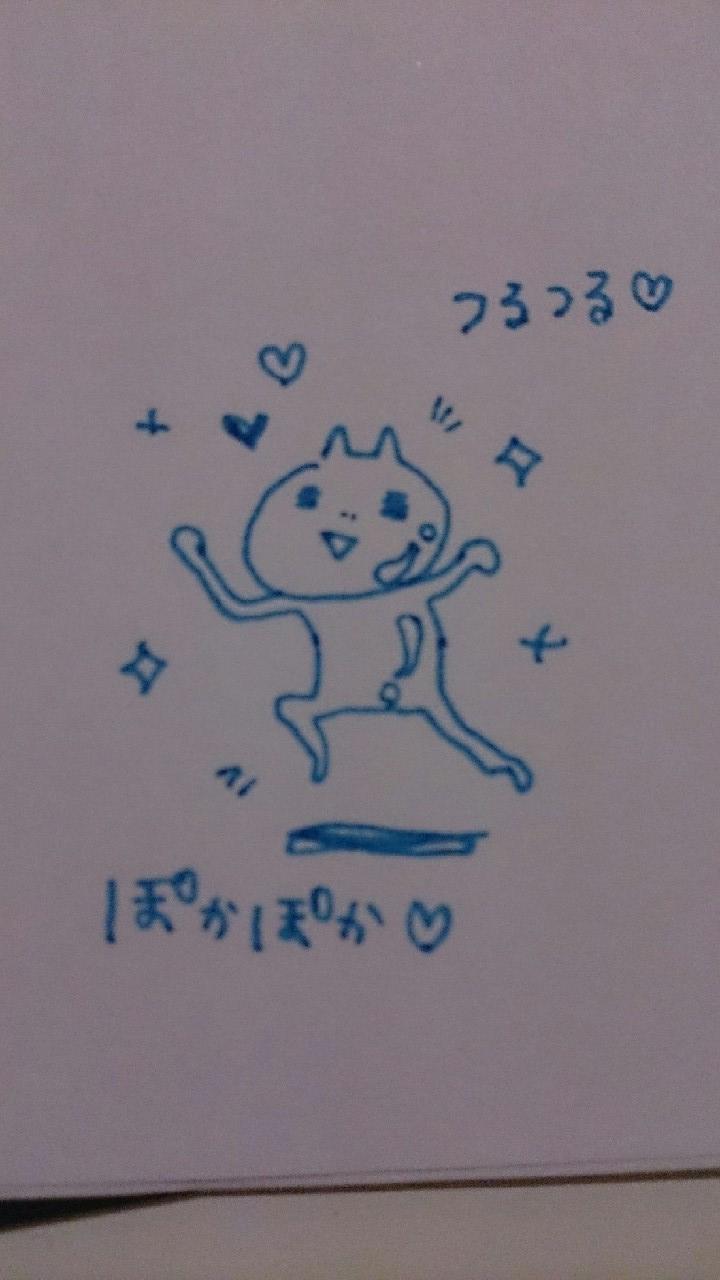 つるつる♡
ぽかぽか♡